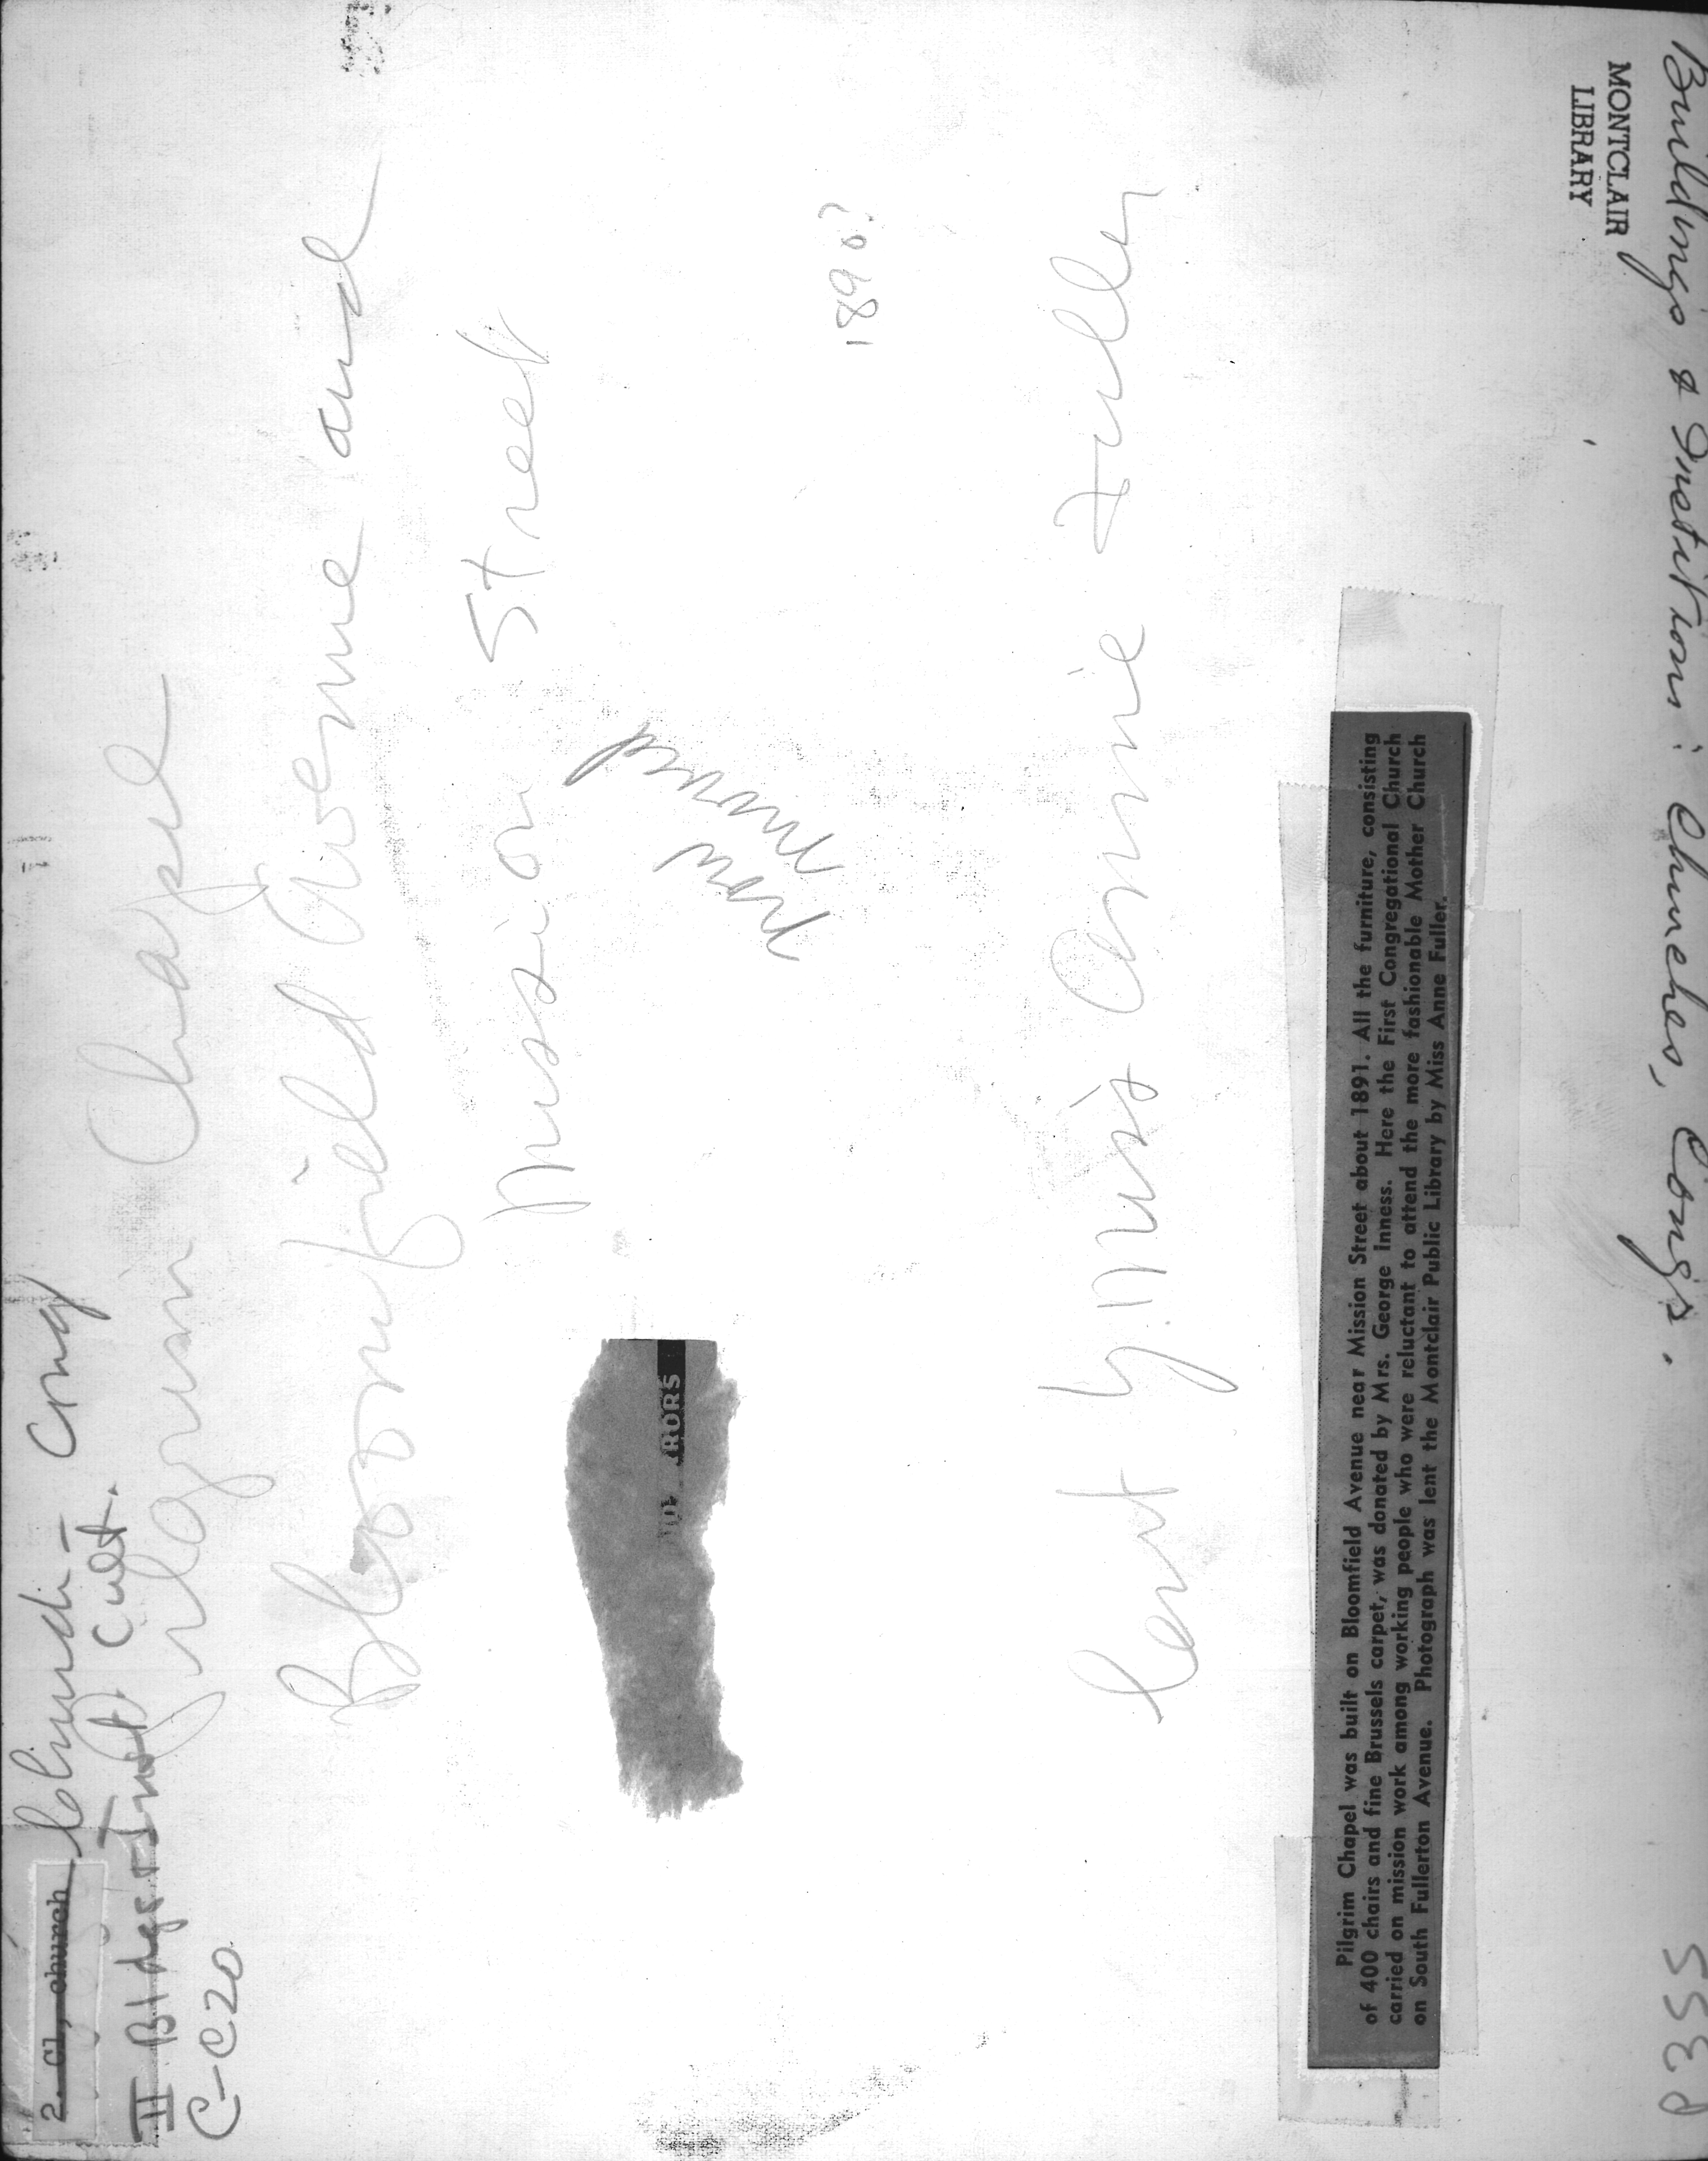 2. Cl, church Church - Cong
II Bldgs + Inst. Cult.
C-C20
Pilgrim Chapel
Bloomfield Avenue and
Mission Street
now
moved
1890?
RORS
Lent by Miss Annie Fuller
Pilgrim Chapel was built on Bloomfield Avenue near Mission Street about 1891. All the furniture, consisting
of 400 chairs and fine Brussels carpet, was donated by Mrs. George Inness. Here the First Congregational Church
carried on mission work among working people who were reluctant to attend the more fashionable Mother Church
on South Fullerton Avenue. Photograph was lent the Montclair Public Library by Miss Anne Fuller.
MONTCLAIR
LIBRARY
Buildings & Institions : Churches, Cong's.